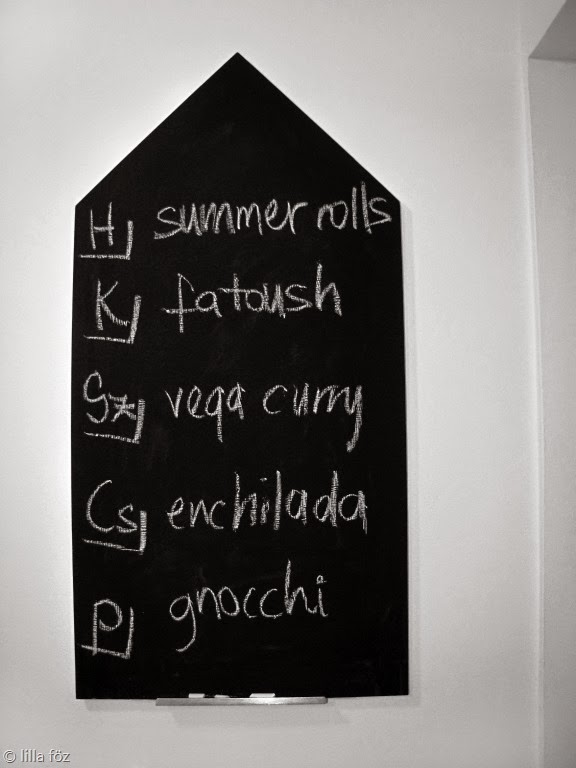 H summer rolls
K fatoush
Sz vega curry
Cs enchilada
P gnocchi
© lilla föz